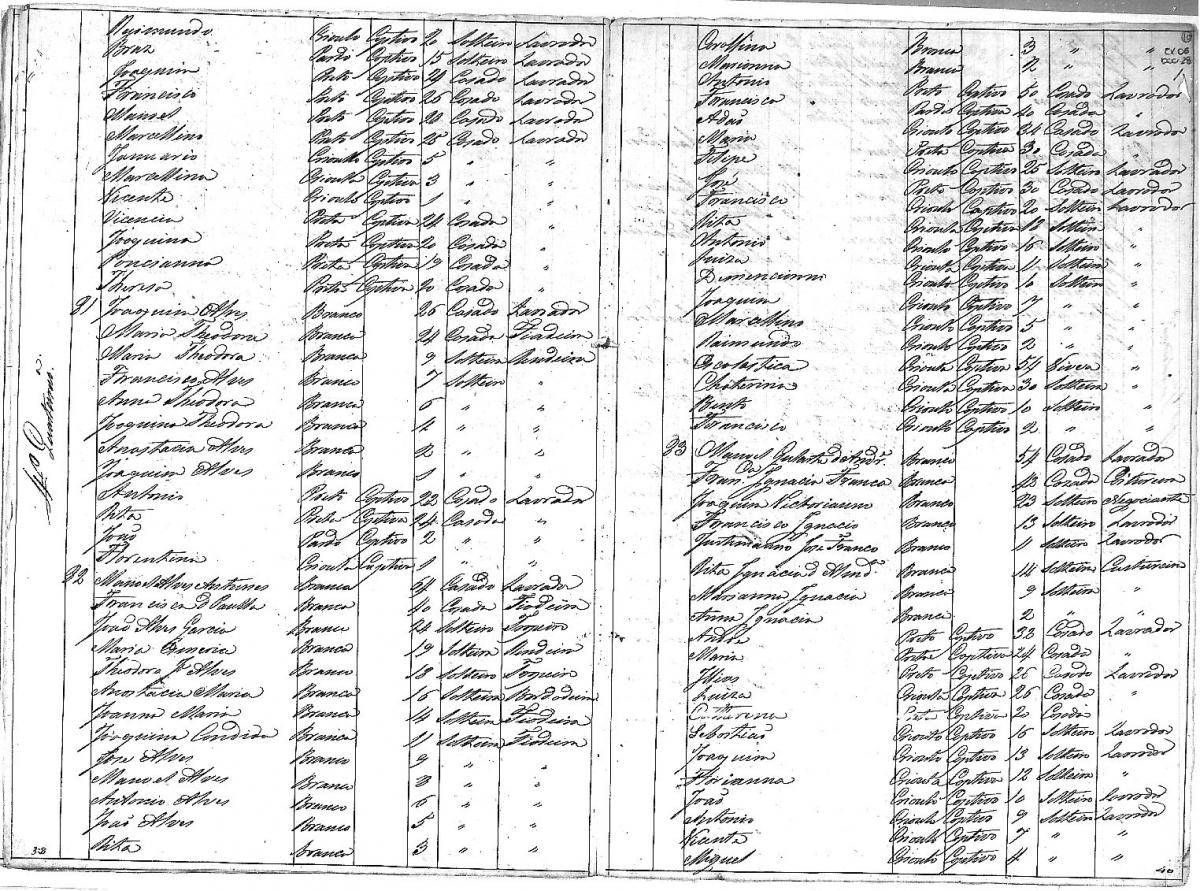 Raimundo Crioulo Captivo 20 Solteiro Lavrador
Braz Pardo Captivo 15 Solteiro Lavrador
Joaquim Preto Captivo 24 Casado Lavrador
Francisco Preto Captivo 26 Casado Lavrador
Manoel Preto Captivo 20 Casado Lavrador
Marcellino Preto Captivo 25 Casado Lavrador
Januario Crioullo Captivo 5 " "
Marcellina Crioula Captiva 3 " "
Vicente Crioulo Captivo 1 " "
Vicencia Preta Captiva 24 Casada "
Joaquina Preta Captiva 20 Casada "
Poncianna Preta Captiva 19 Casada "
Thereza Preta Captiva 20 Casada "
81 Joaquim Alves Branco 26 Casado Lavrador
Maria Theodora Branca 24 Casada Fiadeira
Maria Theodora Branca 9 Solteira Rendeira
Francisco Alves Branco 7 Solteiro "
Anna Theodora Branca 6 " "
Joaquina Theodora Branca 4 " "
Anastacia Alves Branca 2 " "
Joaquim Alves Branco 1 " "
Antonio Preto Captivo 22 Casado Lavrador
Rita Preta Captiva 24 Casada "
João Pardo Captivo 2 " "
Florentina Crioula Captiva 1 " "
82 Manoel Alves Antunes Branco 64 Casado Lavrador
Francisca d Paulla Branca 40 Casada Fiadeira
João Alves Garcia Branco 24 Solteiro
Maria Branca 19 Solteira Rendeira
Theodoro J. Alves Branco 18 Solteiro
Anastacia Maria Branca 16 Solteira Bordadeira
Joanna Maria Branca 14 Solteira Fiadeira
Joaquina Candida Branca 11 Solteira Fiadeira
Jose Alves Branco 9 " "
Manoel Alves Branco 8 " "
Antonio Alves Branco 6 " "
João Alves Branco 5 " "
Rita Branca 3 " "
4o
38
Carollina Branca 3 " "
Marianna Branca 2 " "
Antonio Preto Captivo 50 Casado Lavrador
Francisca Parda Captiva 40 Casada "
Adão Crioulo Captivo 34 Casado Lavrador
Maria Preta Captiva 30 Casada "
Felipe Crioulo Captivo 25 Solteiro Lavrador
José Preto Captivo 30 Casado Lavrador
Francisco Crioulo Captivo 20 Solteiro Lavrador
Rita Crioula Captiva 18 Solteira "
Antonio Crioulo Captivo 16 Solteiro "
Luiza Crioula Captiva 11 Solteira "
Crioula Captiva 10 Solteira "
Joaquim Crioulo Captivo 7 " "
Marcellino Crioulo Captivo 5 " "
Raimundo Crioulo Captivo 2 " "
Escolastica Crioula Captiva 54 Viuva "
Chaterina Crioula Captiva 30 Solteira "
Bento Crioulo Captivo 10 Solteiro "
Francisco Crioulo Captivo 2 " "
83 Manoel Branco 54 Casado Lavrador
Fran.ca Ignacia Franca Branca 43 Casada
Joaquim Victorianno Branco 23 Solteiro Negociante
Francisco Ignacio Branco 13 Solteiro Lavrador
Justinianno José Franco Branco 11 Solteiro Lavrador
Rita Ignacia d And.e Branca 14 Solteira Custureira
Marianna Ignacia Branca 9 Solteira "
Anna Ignacia Branca 2 " "
André Preto Captivo 38 Casado Lavrador
Maria Preta Captiva 24 Casada "
Elias Preto Captivo 26 Casado Lavrador
Luiza Crioula Captiva 26 Casada "
Preta Captiva 20 Casada
Sebastião Crioulo Captivo 16 Solteiro Lavrador
Joaquim Crioulo Captivo 13 Solteiro Lavrador
Florianna Crioula Captiva 12 Solteira "
João Crioulo Captivo 10 Solteiro Lavrador
Antonio Crioulo Captivo 9 Solteiro Lavrador
Vicente Crioulo Captivo 7 " "
Miguel Crioulo Captivo 4 " "
40